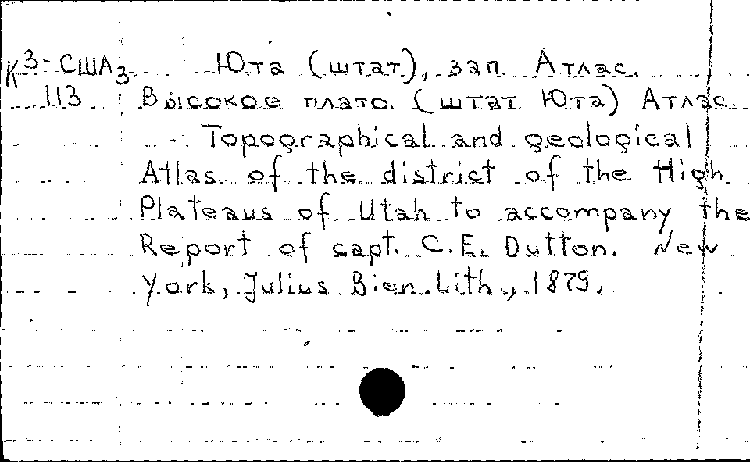 К3-США3 Юта (штат), зап. Атлас.
113 Высокое плато. (штат Юта) Атлас
- Topographical and geological
Atlas of the district of the High
Plateaus of Utah to accompany the
Report of capt. C.E. Dutton. New
York, Julius Bien. Lith., 1879.